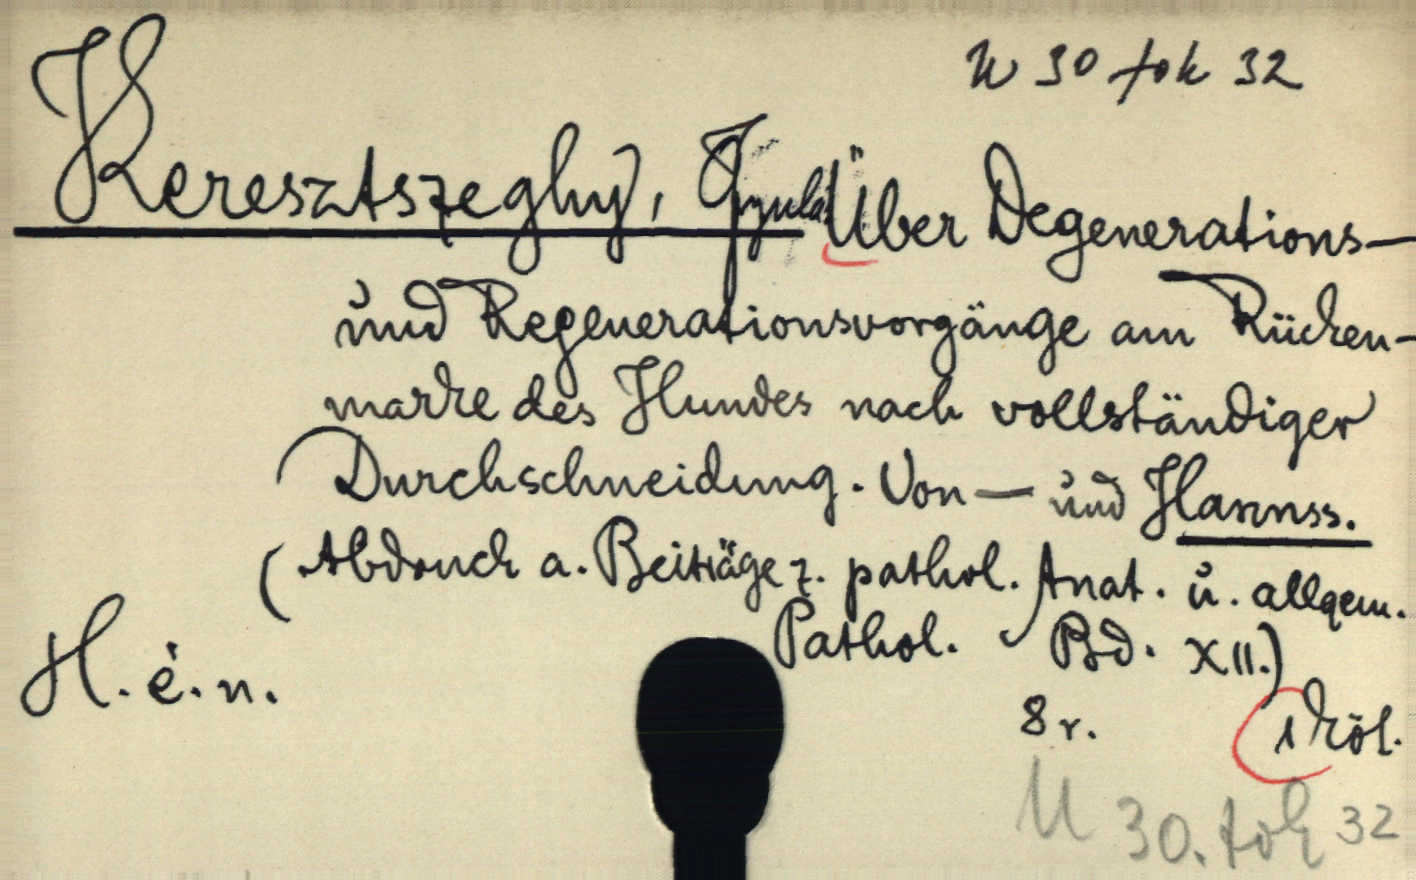 U 30 tok 32
Keresztszeghy, Gyula. Über Degenerations-
und Regenerationsvorgänge am Rücken-
marke des Hundes nach vollständiger
Durchschneidung. Von — und Hannss.
(Abdruck a. Beiträge z. pathol. Anat. u. allgem.
Pathol. Bd. XII.)
H. é. n.
8 r. 1 köl.
U 30. tok 32